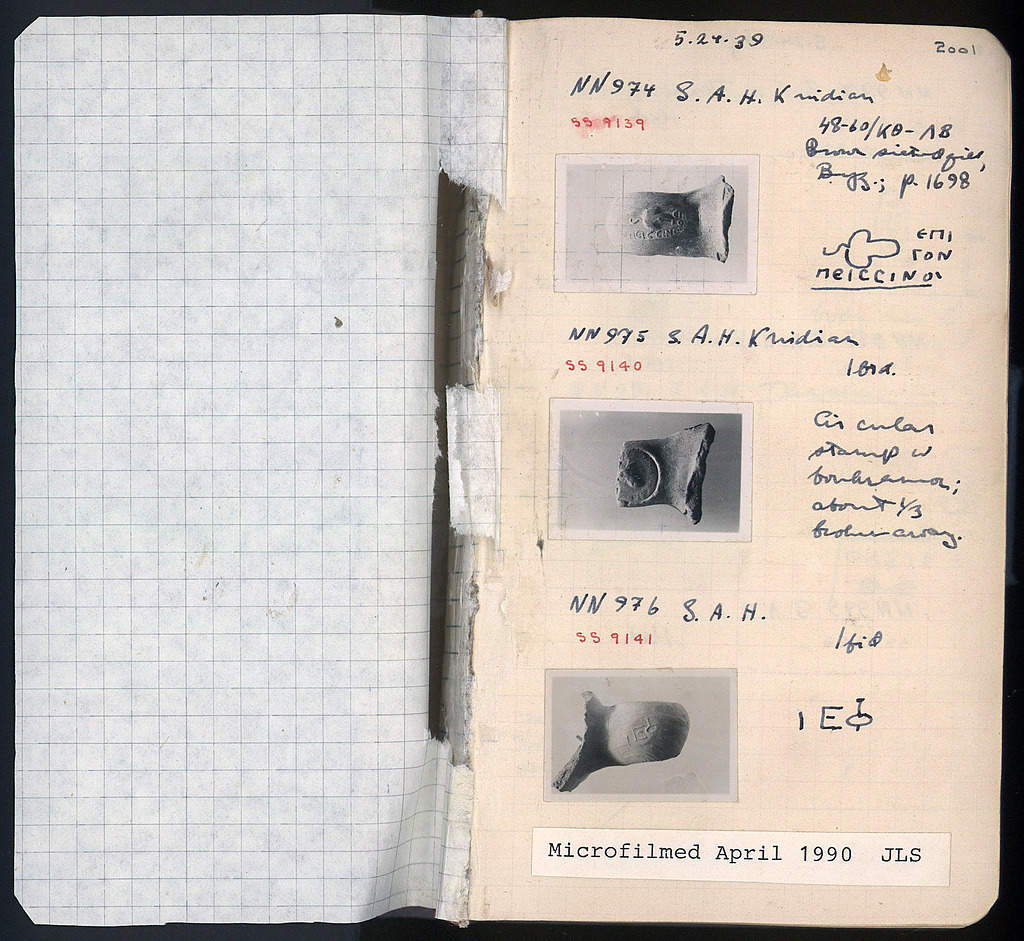 5.24.39
2001
NN 974 S. A. H. Knidian
SS 9139
48-60/ΚΘ-ΛΒ
Brown
Byz.; p. 1698
ΕΠΙ
ΤΟΝ
ΜΕΙCCΙΝΟ
NN 975 S. A. H. Knidian
SS 9140
Ibid.
Circular
stamp w
boukranion;
about 1/3
broken away.
NN 976 S. A. H.
SS 9141
Ibid
ΙΕΦ
Microfilmed April 1990 JLS